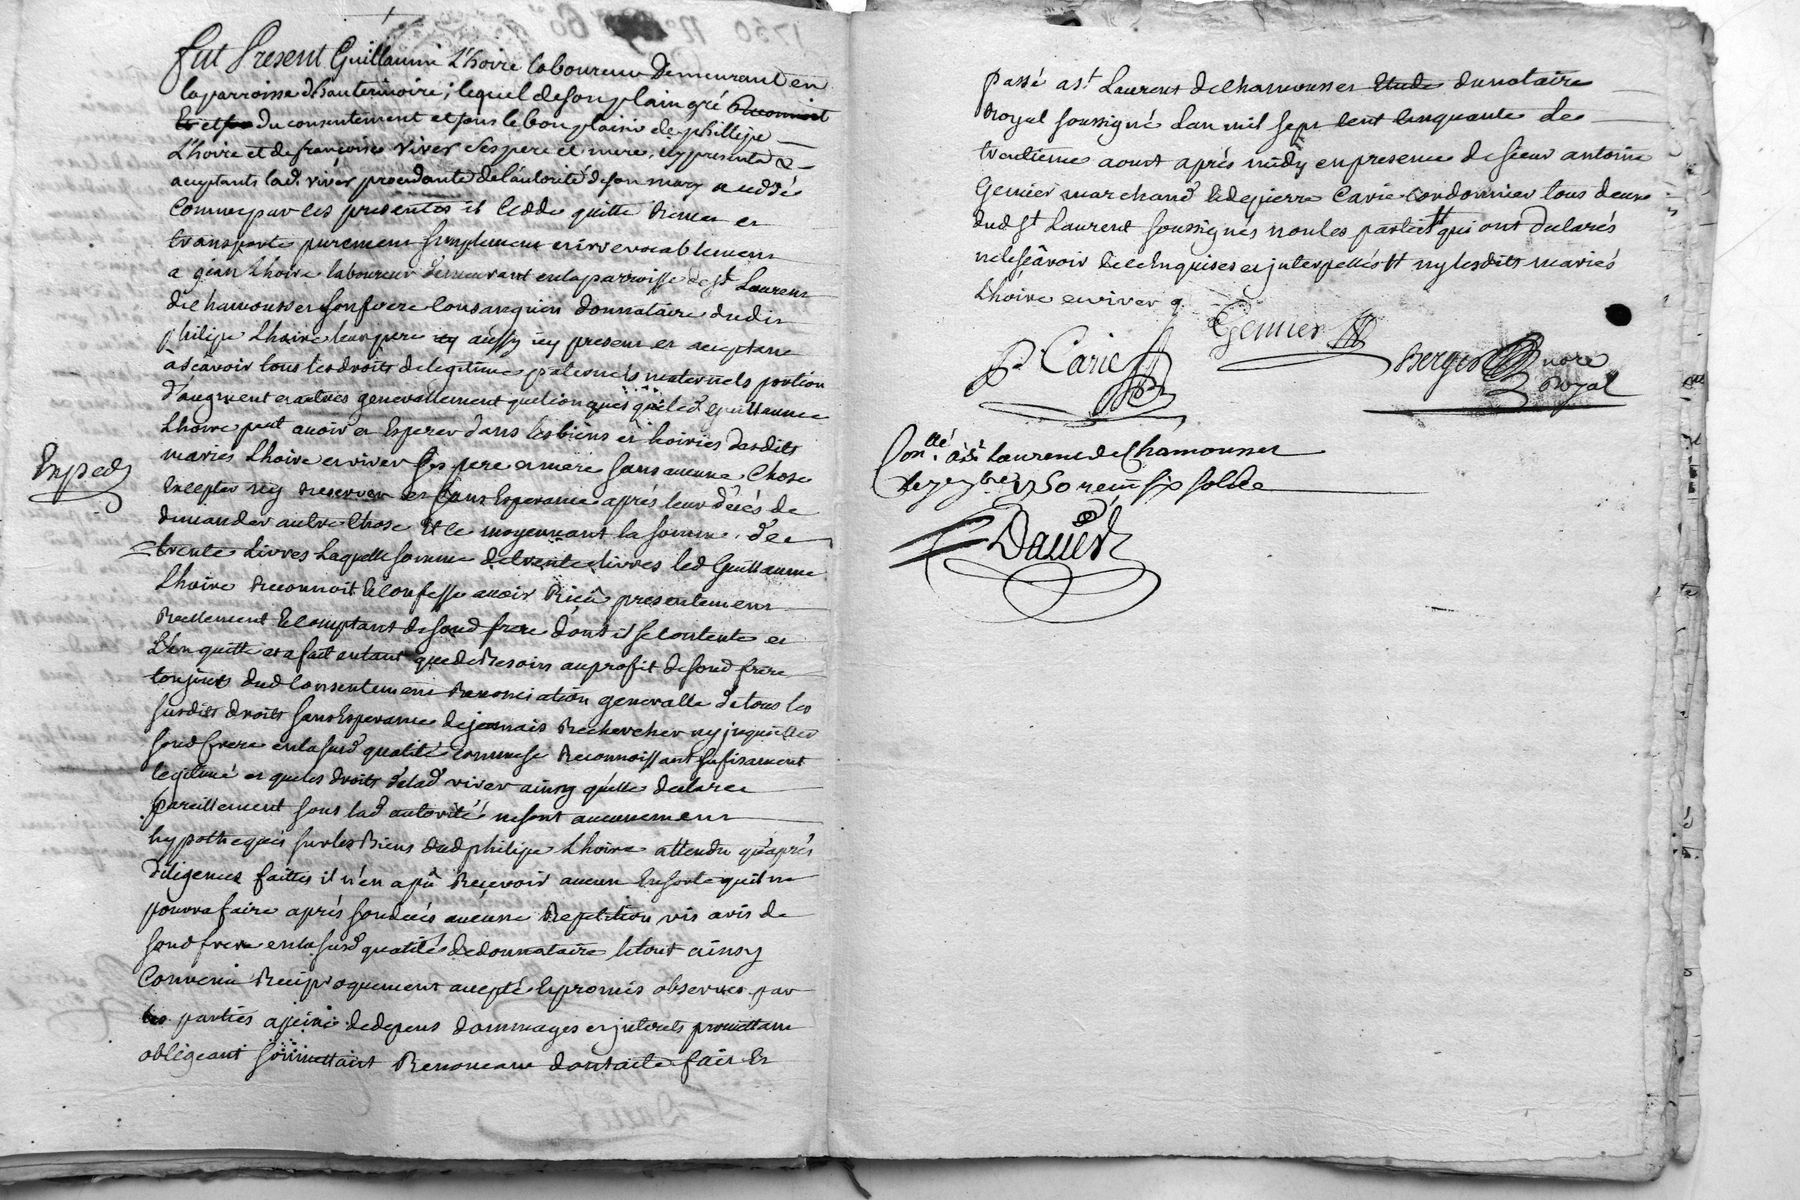 Fut Present Guillaume Lhoire laboureur demeurant en
la parroisse d'hauterivoire; lequel de son plain gré
du consentement et sous le bon plaisir de phillipe
Lhoire et de françoise viver ses pere et mere, icy presents &
acceptants lad. vivér procedante de l'autorité de son mary a cédé
comme par ces presentes il cedde quitte remet et
transporte purement simplement et irrevocablement
a jean Lhoire laboureur demeurant en la parroisse de st Laurent
de chamousset son frere consanguien donnataire dudit
philipe Lhoire leur pere aussy icy present et acceptant
à scavoir tous les droits de legitime paternels maternels portion
d'augment et autres generallement quelconques que led guillaume
Lhoire peut avoir et Esperer dans les biens et hoiries desdits
mariés Lhoire et viver ses pere et mere sans aucune Chose
Excepter ny reserver et sans Esperance aprés leur décés de
demander autre Chose Et ce moyennant la somme de
trente Livres Laquelle somme de trente livres led Guillaume
Lhoire reconnoit & confesse avoir Riçû presentement
Reellement & comptant de soud frere dont il se contente et
L'en quitte et a fait entant que de Besoins au profit de soud frere
toujours dud consentement Renonciation generalle de tous les
susdits droits sans Esperance de jamais Rechercher ny inquietter
soud frere en la susd qualité comme se Reconnoissant sufisament
legitimé et que les droits de lad viver ainsy qu'elle declare
pareillement sous lad autorité ne sont aucunement
hypothequés sur les Biens dud philipe Lhoire attendu qu'aprés
diligences faittes il n'en a pû Reçevoir aucun Ensorte quil ne
pourra faire aprés son decés aucune Repetition vis avis de
soud frere en la susd qualité de donnataire le tout ainsy
Convenu Reciproquement accepté & promis observer par
les parties a peine de depens dommages et interets promettant
obligeant soumettant Renonceant dont acte fait Et
Exped
passé a st Laurent de Chamousset Etude du notaire
Royal soussigné L'an mil sept cent cinquante Le
trentieme aoust aprés midy en presence de sieur antoine
Gemier marchand & de pierre Carie Cordonnier tous deux
dud st Laurent soussignés non les parties qui ont declarés
ne scavoir de ce Enquises et interpellés ny lesdits mariés
Lhoire et viver
P. Carie
Gemier
Berger nore
Royal
Conllé a st Laurent de Chamousset
1750
David